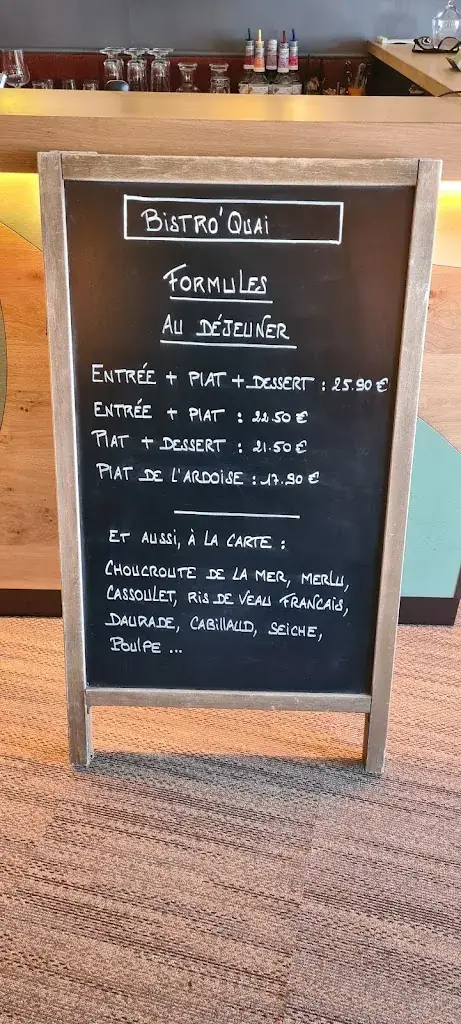 BISTRO'QUAI
FORMULES
AU DÉJEUNER
ENTRÉE + PLAT + DESSERT : 25.90 €
ENTRÉE + PLAT : 22.50 €
PLAT + DESSERT : 21.50 €
PLAT DE L'ARDOISE : 17.90 €
ET AUSSI, À LA CARTE :
CHOUCROUTE DE LA MER, MERLU,
CASSOULET, RIS DE VEAU FRANCAIS,
DAURADE, CABILLAUD, SEICHE,
POULPE ...